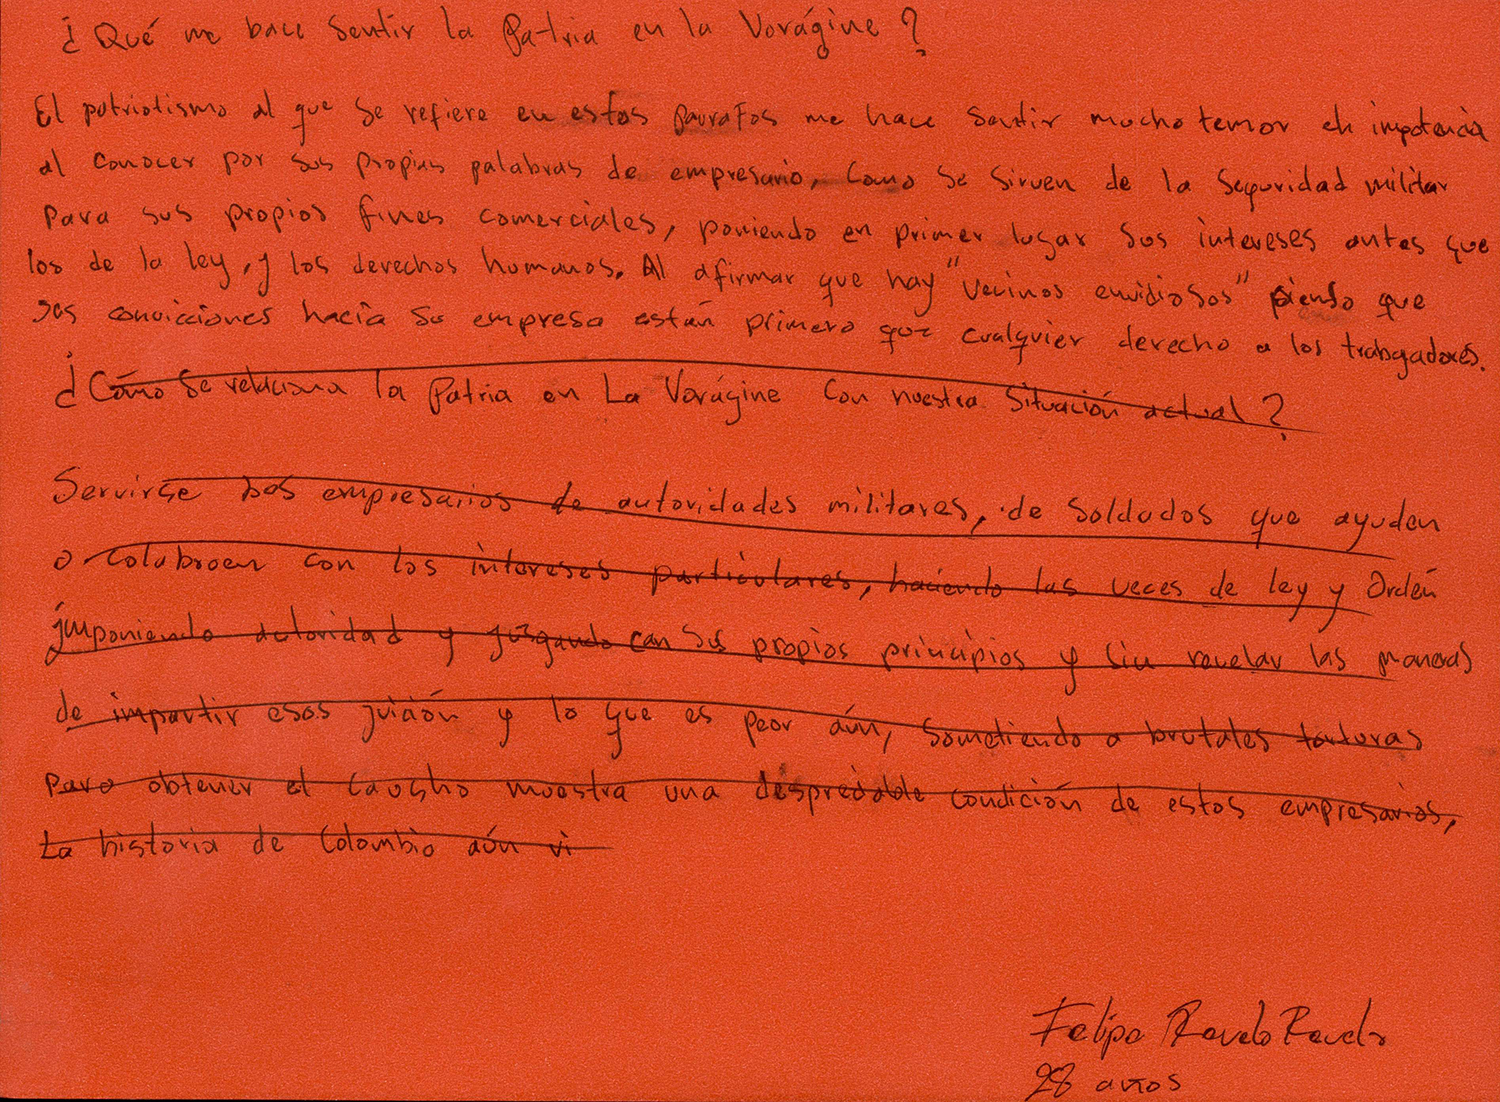 ¿Qué me hace sentir la Patria en la Vorágine?
El patriotismo al que se refiere en estos parrafos me hace sentir mucho temor e impotencia
al conocer por sus propias palabras de empresario, como se sirven de la seguridad militar
para sus propios fines comerciales, poniendo en primer lugar sus intereses antes que
los de la ley, y los derechos humanos. Al afirmar que hay "vecinos envidiosos" pienso que
sus convicciones hacia su empresa están primero que cualquier derecho a los trabajadores.
¿Cómo se relaciona la Patria en La Vorágine con nuestra situación actual?
Servirse los empresarios de autoridades militares, de soldados que ayuden
o colabroen con los intereses particulares, haciendo las veces de ley y orden
imponiendo autoridad y juzgando con sus propios principios y sin revelar las maneras
de impartir esos juición y lo que es peor aún, sometiendo a brutales torturas
para obtener el caucho muestra una despreciable condición de estos empresarios,
La historia de Colombia aún vi
Felipe
28 años